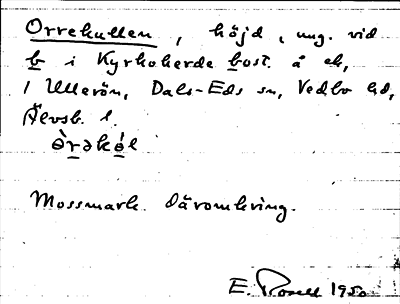 Orrekullen, höjd, ung. vid
b i Kyrkoherde bost. å ek,
1 Ullerön, Dals-Eds sn, Vedbo hd,
Älvsb. l.
Mossmark däromkring.
E. Rosell 1950